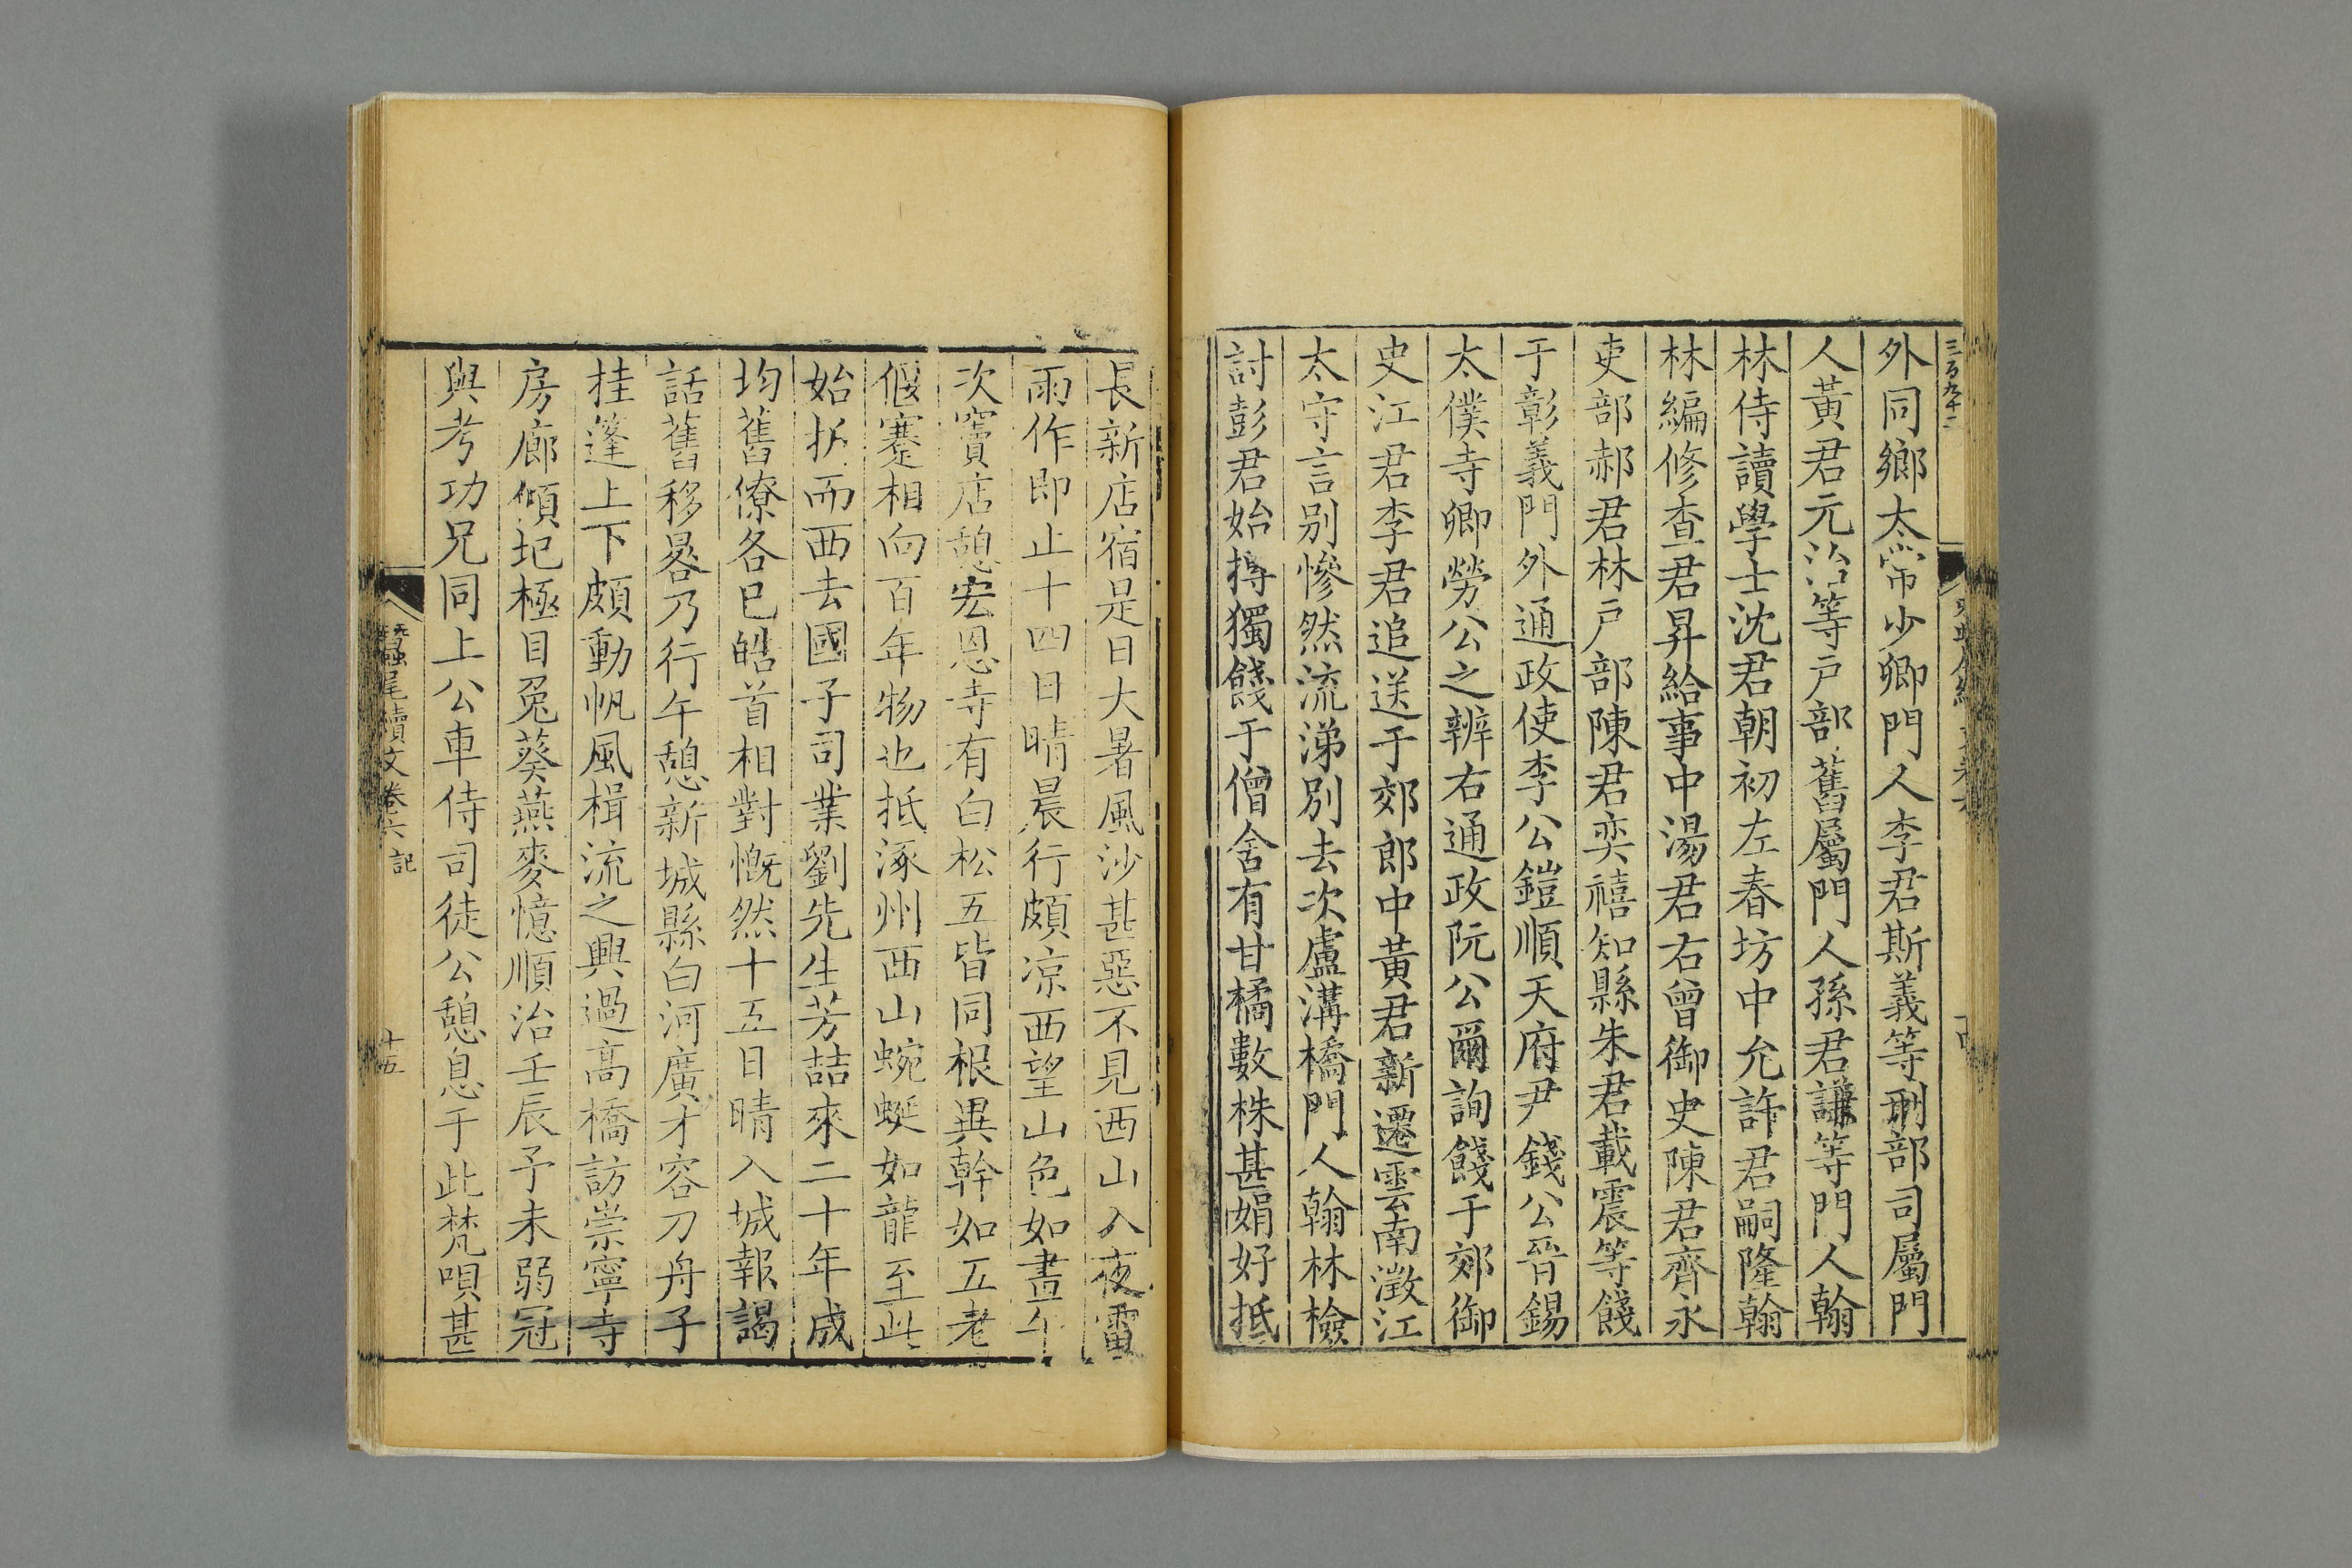 三百九十二
外同鄉太常少卿門人李君斯義等刑部司屬門
人黃君元治等戸部舊屬門人孫君謙等門人翰
林侍讀學士沈君朝初左春坊中允許君嗣隆翰
林編修查君昇給事中湯君右曾御史陳君齊永
吏部郝君林戸部陳君奕禧知縣朱君載震等餞
于彰義門外通政使李公鎧順天府尹錢公晉錫
太僕寺卿勞公之辨右通政阮公爾詢餞于郊御
史江君李君追送于郊郎中黃君新遷雲南澂江
太守言别慘然流涕别去次盧溝橋門人翰林檢
討彭君始摶獨餞于僧舍有甘橘數株甚娟好抵
長新店宿是日大暑風沙甚惡不見西山入夜雷
雨作即止十四日晴晨行頗凉西望山色如畫午
次竇店憩宏恩寺有白松五皆同根異幹如五老
偃蹇相向百年物也抵涿州西山蜿蜒如龍至此
始折而西去國子司業劉先生芳喆來二十年成
均舊僚各已皓首相對慨然十五日晴入城報謁
話舊移晷乃行午憩新城縣白河廣才容刀舟子
挂篷上下頗動帆風楫流之興過高橋訪崇寧寺
房廊傾圮極目兔葵燕麥憶順治壬辰予未弱冠
與考功兄同上公車侍司徒公憩息于此梵唄甚
蠶尾續文卷六 記
十五